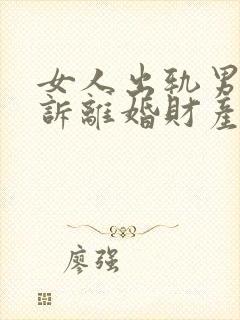 女人出轨男
訴離婚財產
廖强